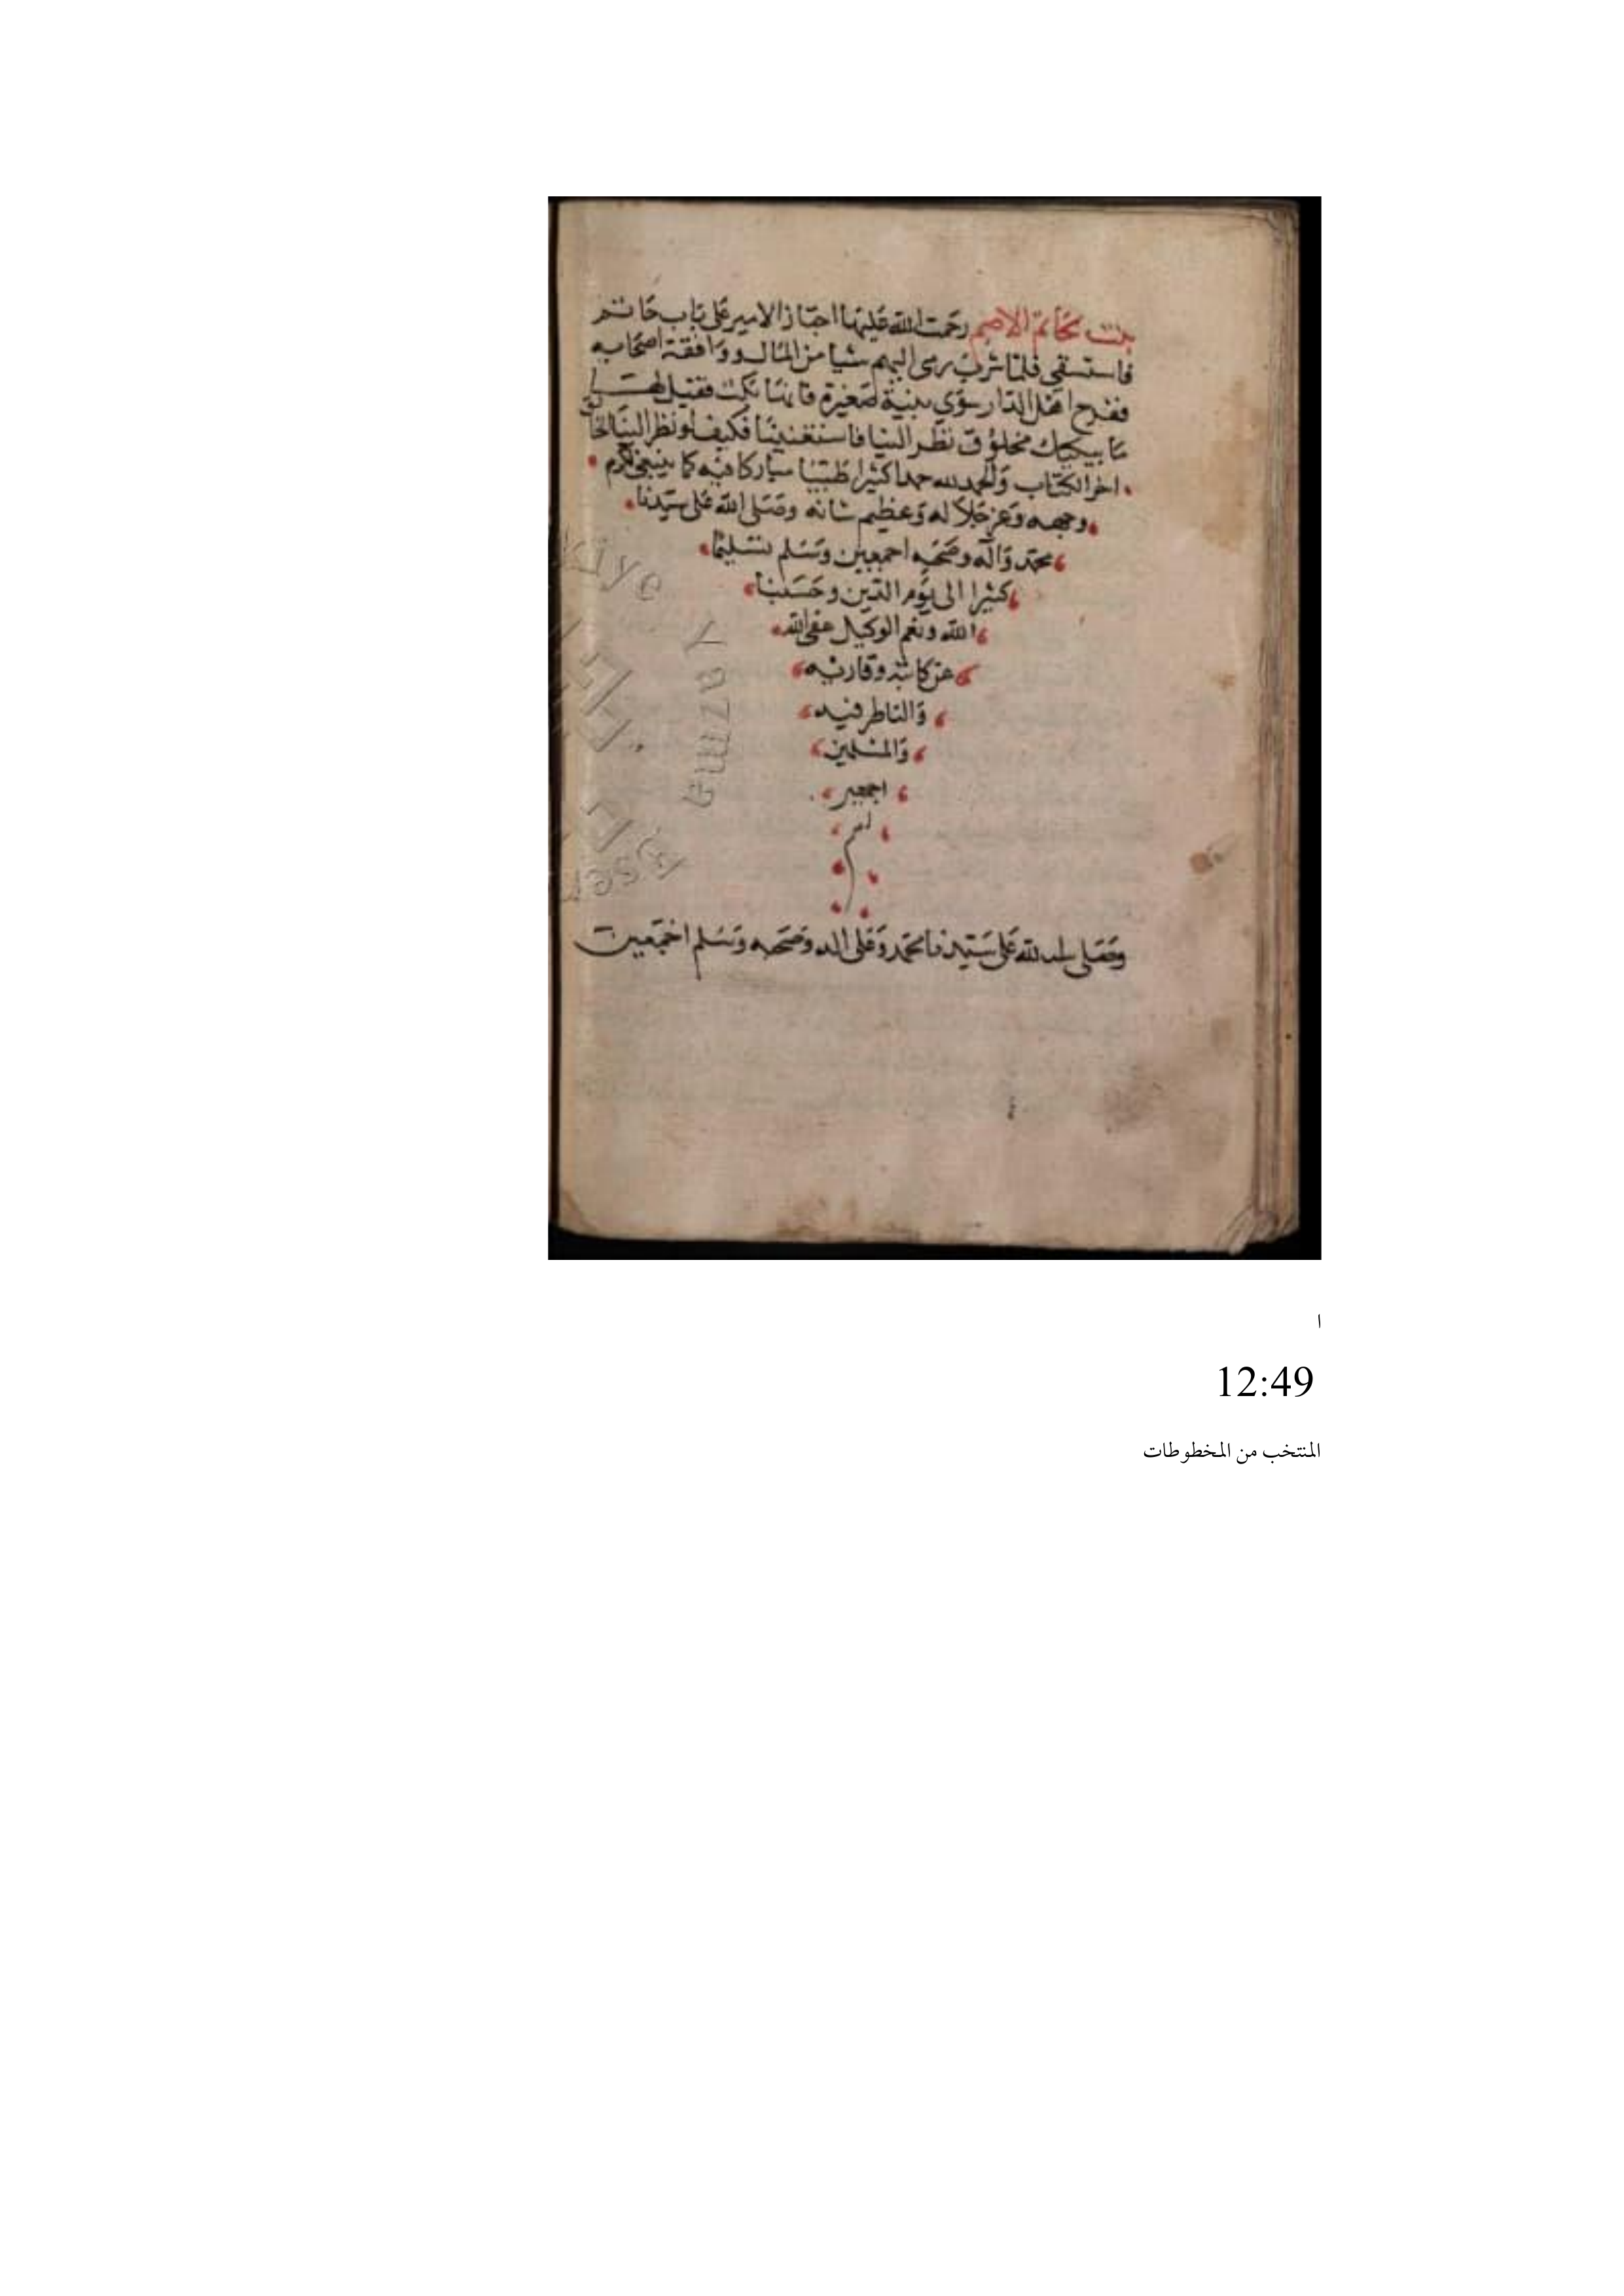 بنت حاتم الاصم رحمت الله عليها اجتاز الامير على باب حاتم
فاستسقى فلما شرب رمى اليهم شيا من المال ووافقة اصحابه
ففرح اهل الدار سوي بنية صغيرة فانها بكت فقيل لها
ما يبكيك مخلوق نظر الينا فاستغنينا فكيف لو نظر الينا الخالق
اخر الكتاب والحمد لله حمدا كثيرا طيبا مباركا فيه كما ينبغي لكرم
وجهه وعز جلاله وعظيم شانه وصلى الله على سيدنا
محمد واله وصحبه اجمعين وسلم تسليما
كثيرا الى يوم الدين وحسبنا
الله ونعم الوكيل عفى الله
عن كاتبه وقاريه
والناظر فيه
والمسلمين
اجمعين
تم
وصلى الله على سيدنا محمد وعلى اله وصحبه وسلم اجمعين
ا
12:49
المنتخب من المخطوطات